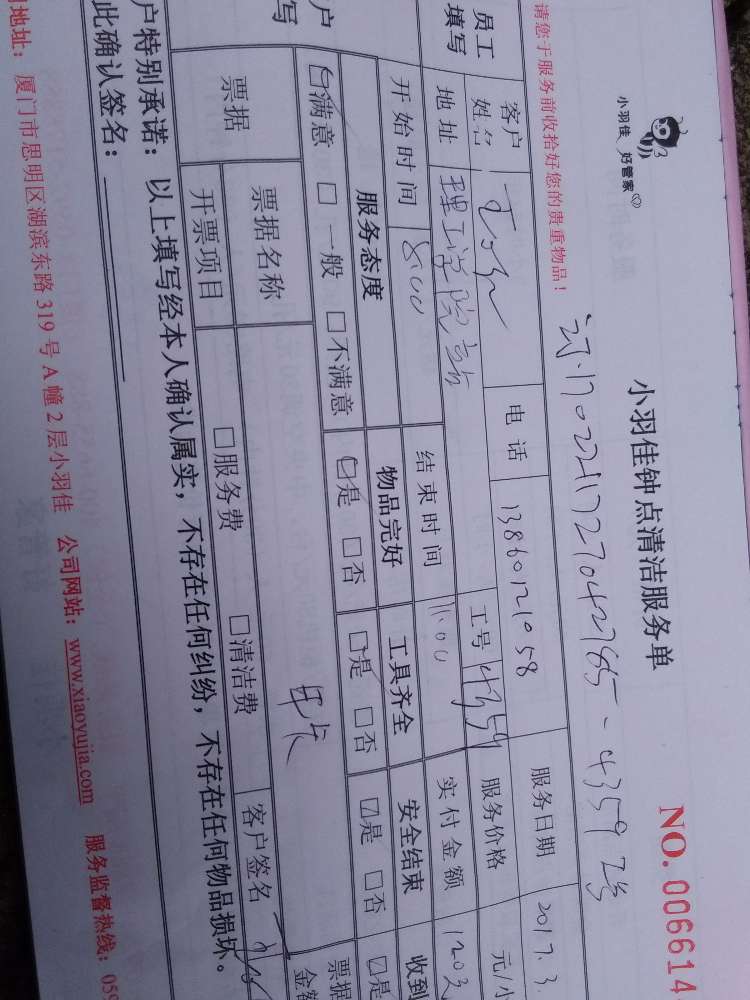 小羽佳 好管家
小羽佳钟点清洁服务单
NO. 006614
请您于服务前收拾好您的贵重物品！
员工
填写
客户
姓名
电话
13860121058
服务日期
2017.3.
地址
理工学院
工号
4359
服务价格
元/小
开始时间
8:00
结束时间
11:00
实付金额
120元
户
写
服务态度
物品完好
工具齐全
安全结束
收到
☑满意 □一般 □不满意
☑是 □否
☑是 □否
☑是 □否
☑是
票据
票据名称
票据
金额
开票项目
□服务费 □清洁费
客户签名
户特别承诺：以上填写经本人确认属实，不存在任何纠纷，不存在任何物品损坏。
此确认签名：
地址：厦门市思明区湖滨东路 319 号 A 幢 2 层小羽佳 公司网站：www.xiaoyujia.com 服务监督热线：059